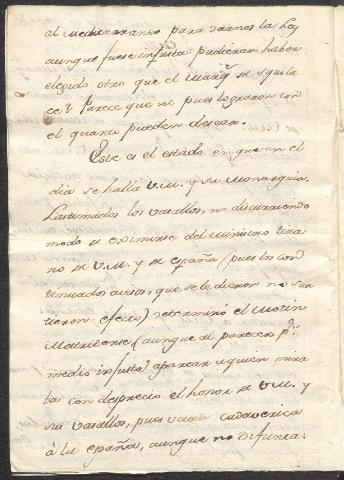 al Mediterraneo para darnos la Ley
aunque fuese injusta: pudieran haber
elegido otro que el Marq.s de Squila
ce? Parece que no pues lograron con
el quanto pueden desear.
Este es el estado en que en el
dia se halla V.M. y su Monarquia.
Lastimados los vasallos, no discurriendo
modo de eximirse del Ministro tira
no de V.M. y de españa (pues los con
tinuados avisos, que se le dieron no sur
tieron efecto) determinó el Motin
Matritense (aunque al parecer p.r
medio injusto) apartar a quien mira
ba con desprecio el honor de V.M. y
sus vasallos, pues veian cadaverica
á la españa, aunque no difunta: